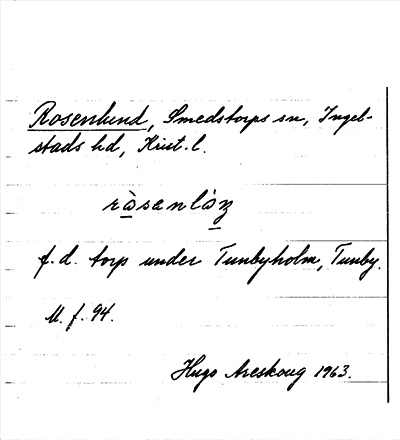 Rosenlund, Smedstorps sn, Ingel-
stads hd, Krist. l.
ràsenlàz
f.d. torp under Tunbyholm, Tunby.
M. f. 94.
Hugo Areskoug 1963.